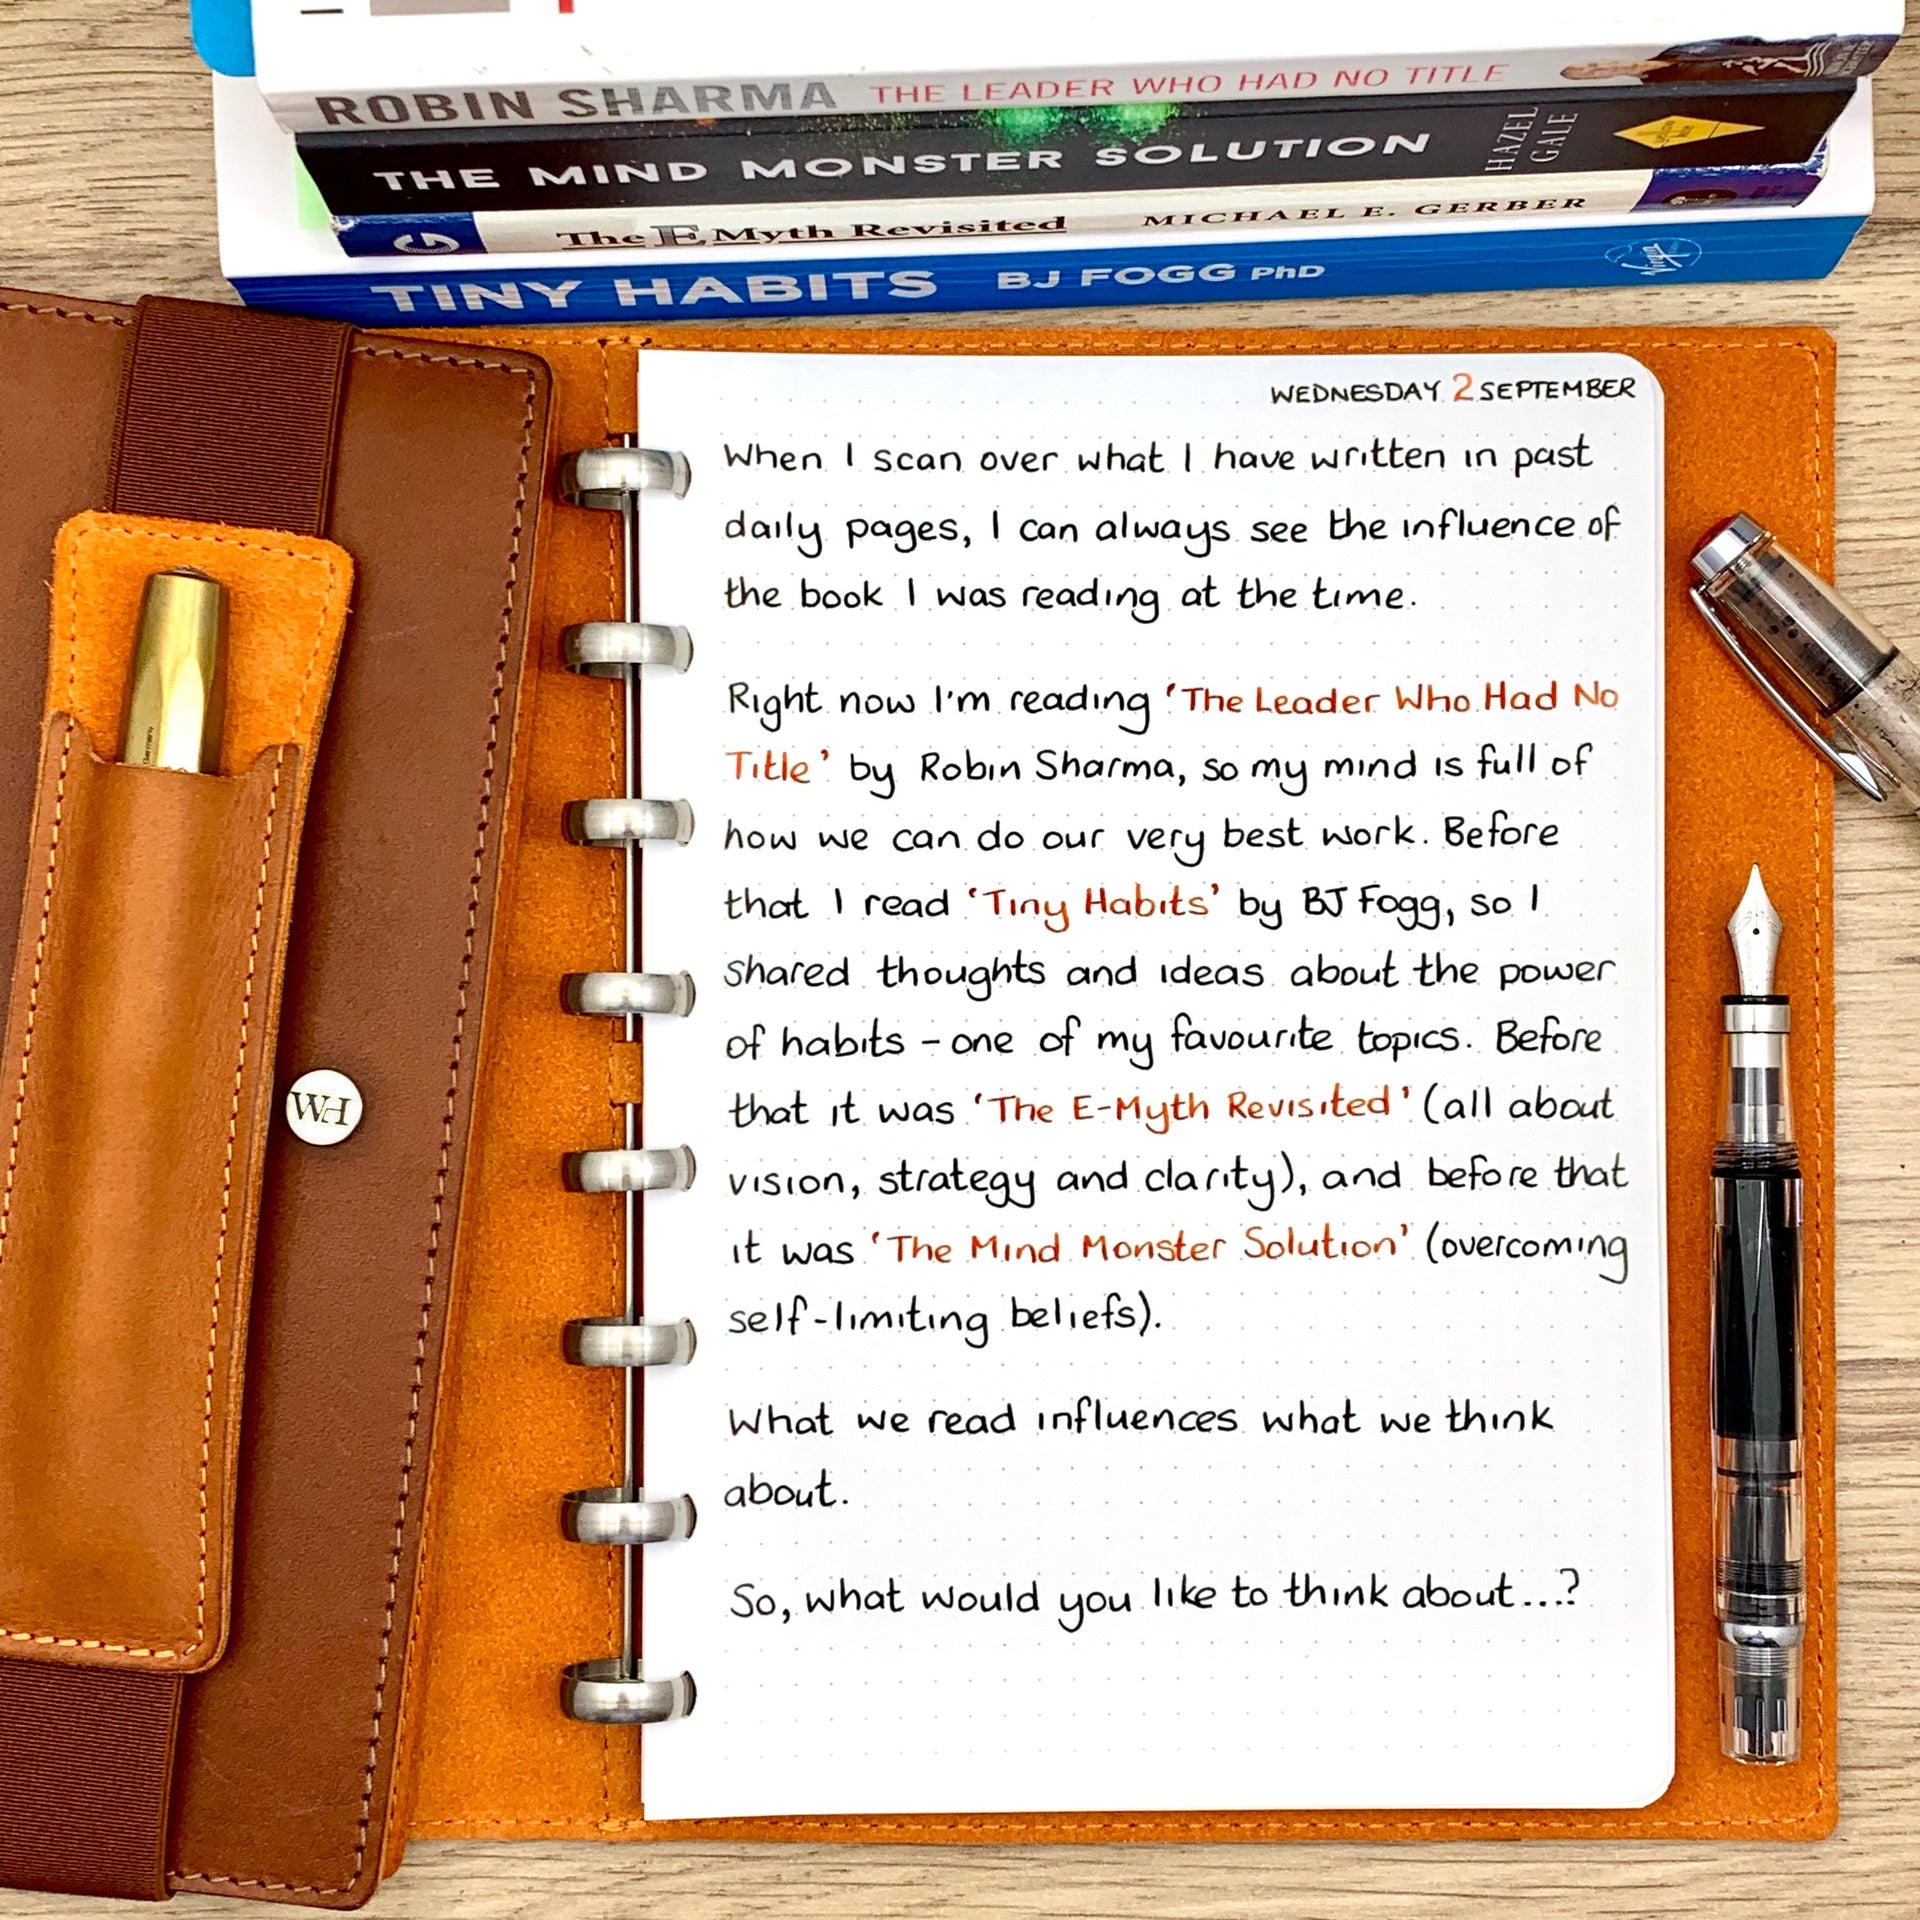 ROBIN SHARMA THE LEADER WHO HAD NO TITLE
THE MIND MONSTER SOLUTION HAZEL GALE
The E Myth Revisited MICHAEL E. GERBER
TINY HABITS BJ FOGG PhD Virgin
WEDNESDAY 2 SEPTEMBER
When I scan over what I have written in past
daily pages, I can always see the influence of
the book I was reading at the time.
Right now I'm reading 'The Leader Who Had No
Title' by Robin Sharma, so my mind is full of
how we can do our very best work. Before
that I read 'Tiny Habits' by BJ Fogg, so I
shared thoughts and ideas about the power
of habits - one of my favourite topics. Before
that it was 'The E-Myth Revisited' (all about
vision, strategy and clarity), and before that
it was 'The Mind Monster Solution' (overcoming
self-limiting beliefs).
What we read influences what we think
about.
So, what would you like to think about...?
WH
Germany